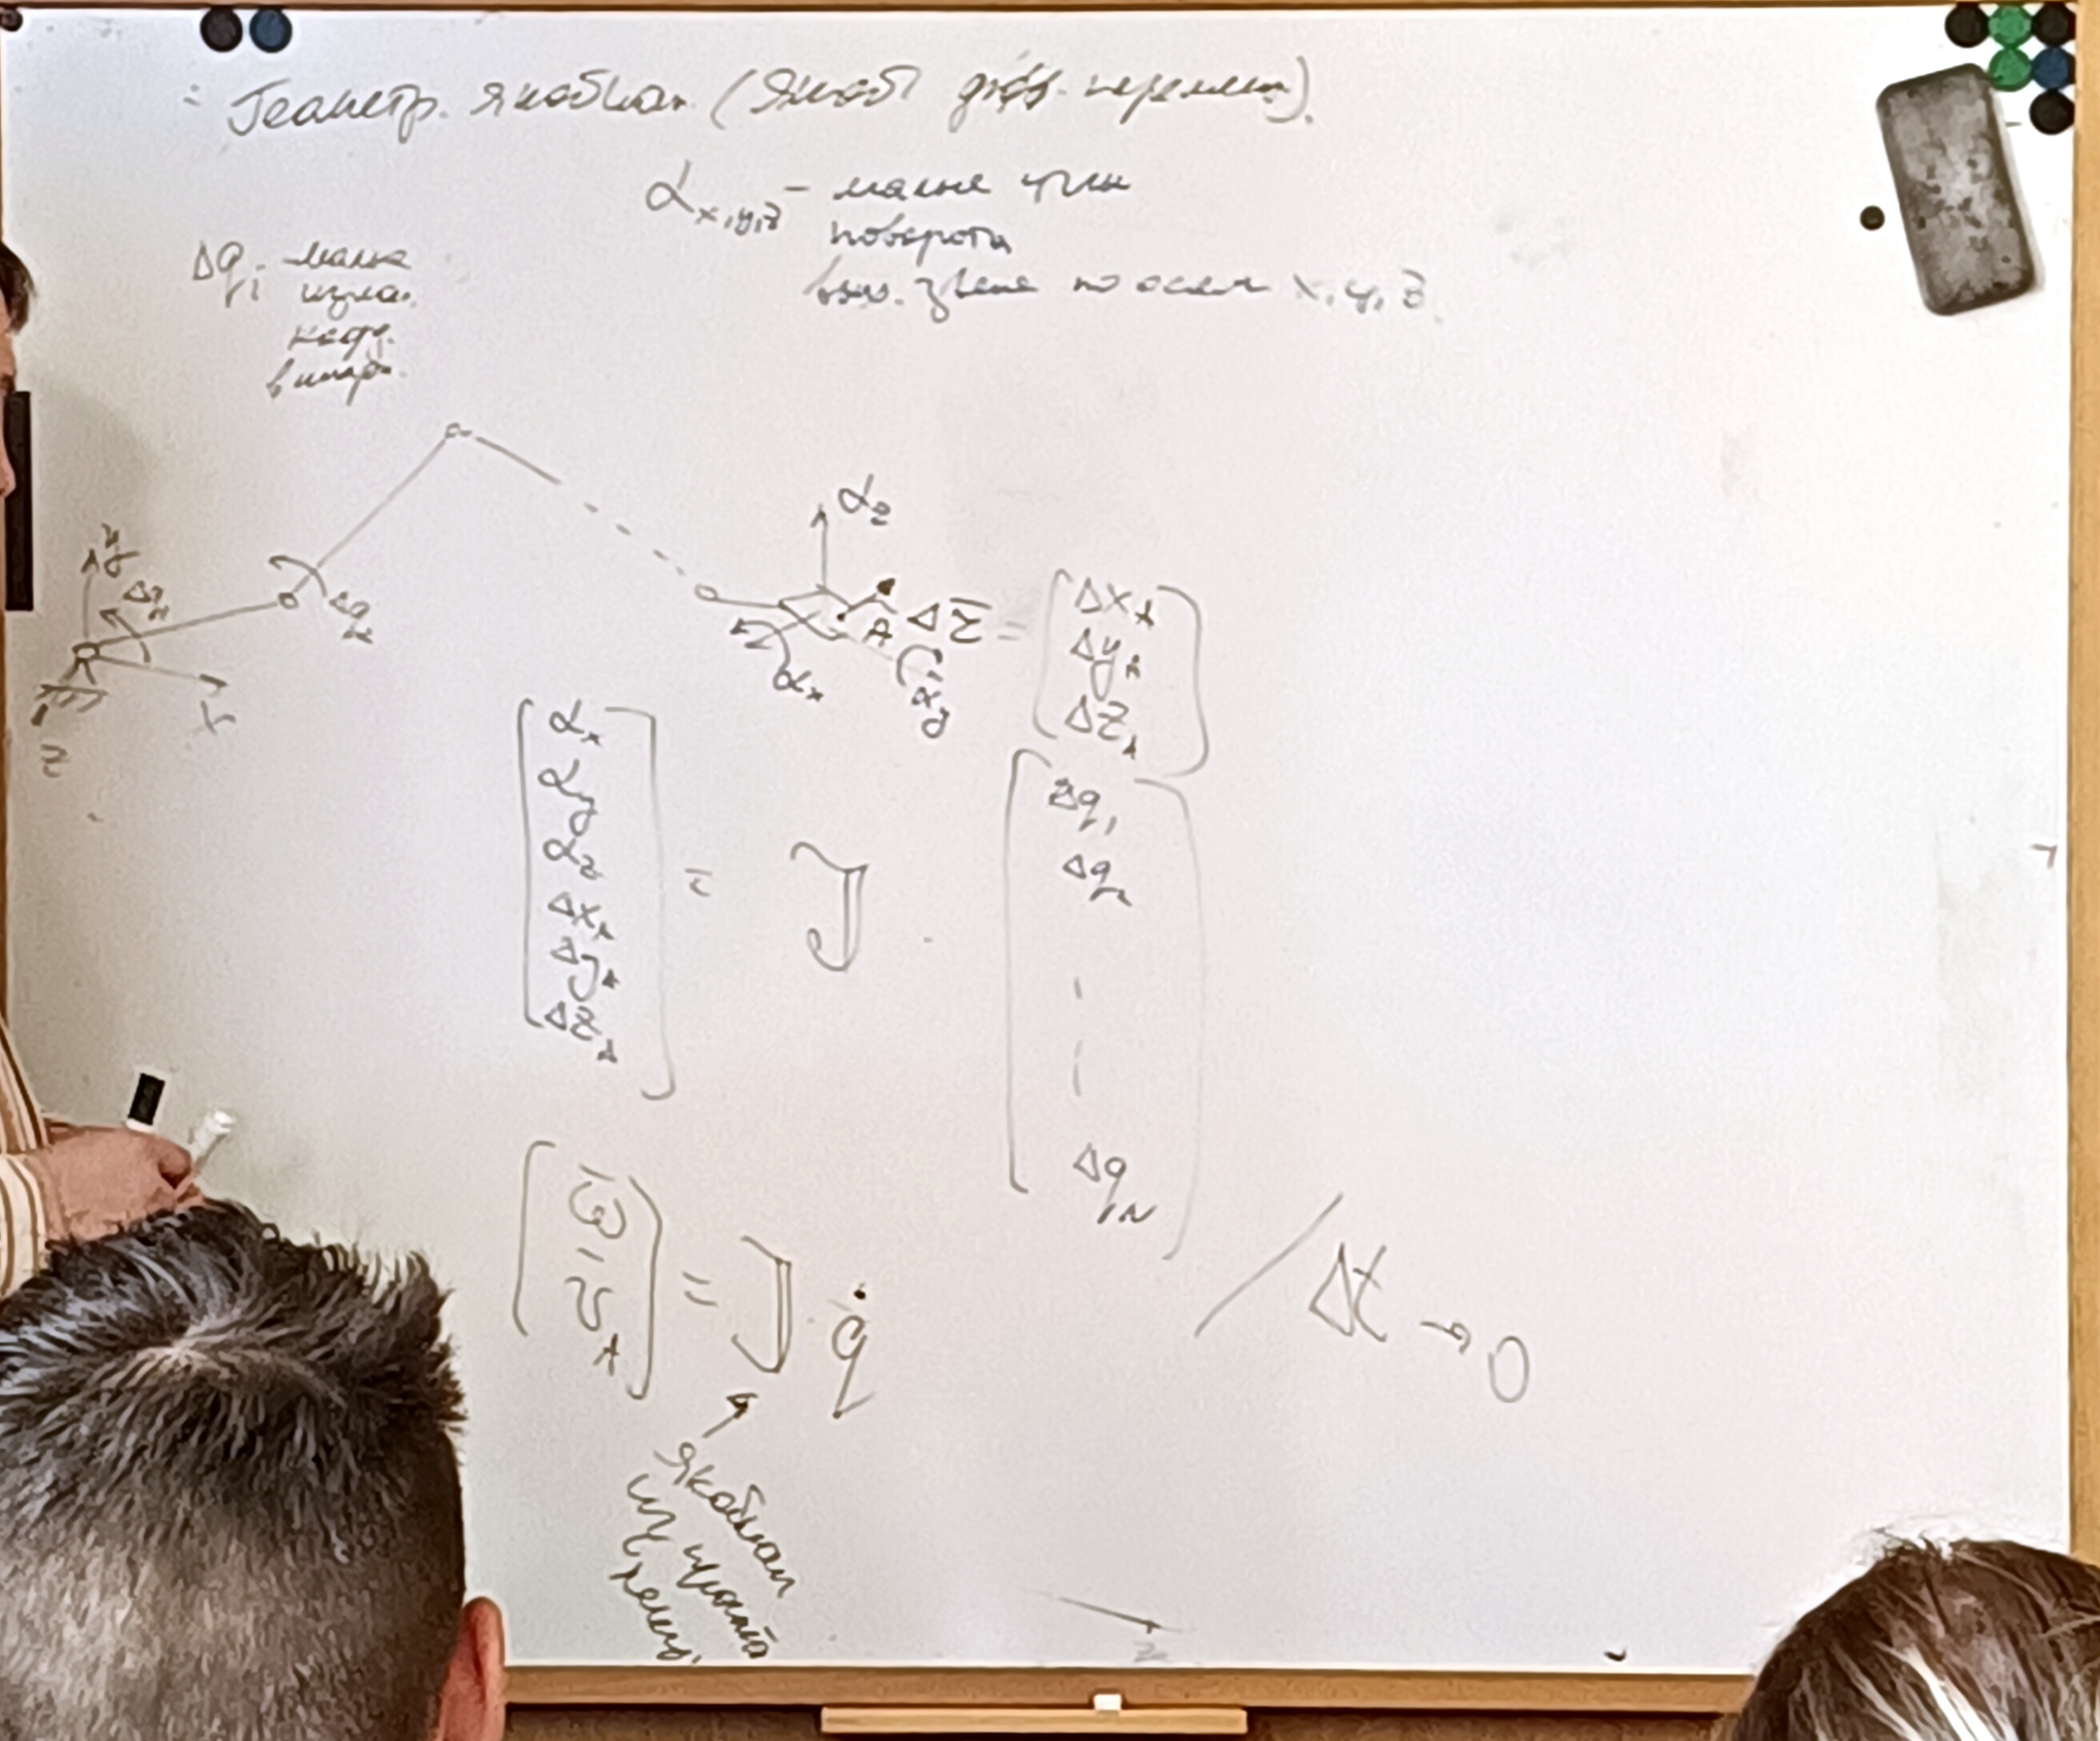 Геометр. якобиан (Якоб дифф. перемещ).
α x,y,z – малые углы
поворота
вых. звена по осям x, y, z.
Δqi - малые
изм.
коорд.
в шарн.
αz
y
Δq1
Δq2
x
z
A
Δr̄ =
αx
αy
[ ΔxA
ΔyA
ΔzA ]
[ αx
αy
αz
ΔxA
ΔyA
ΔzA ]
= J ·
[ Δq1
Δq2
Δqn ]
/ Δt → 0
[ ω̄
v̄A ] = J · q̇
якобиан
из